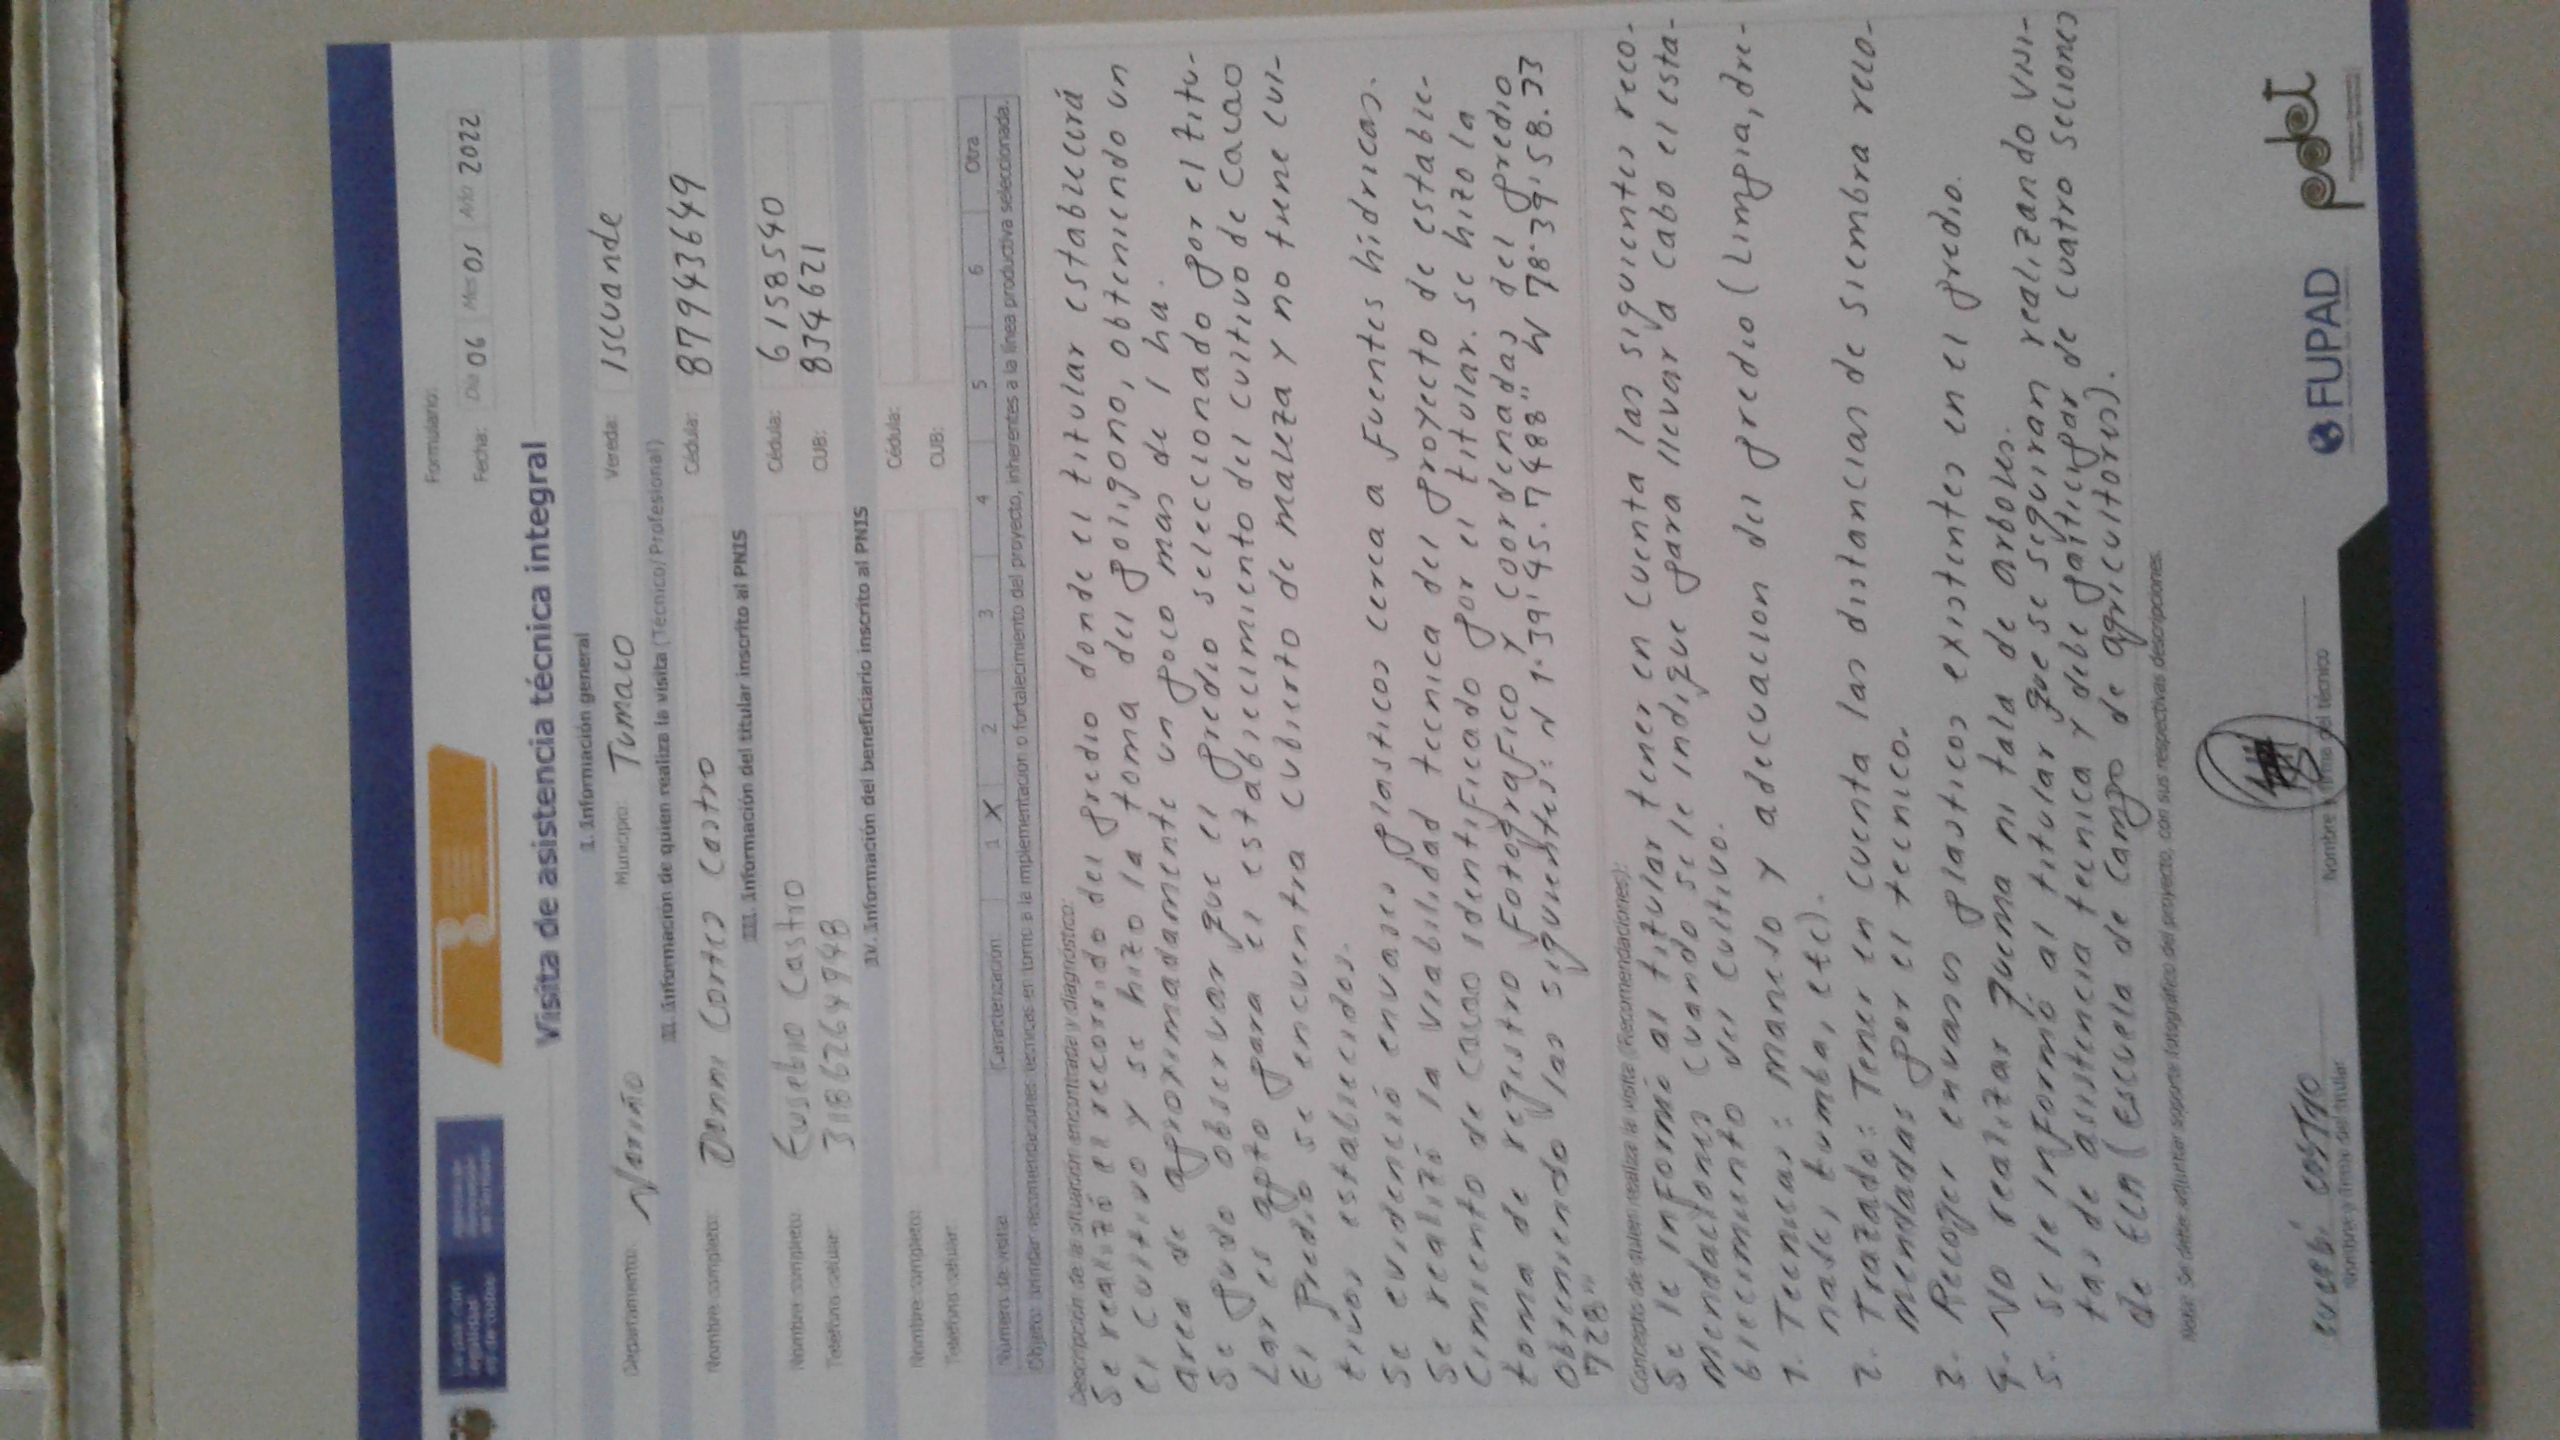 La paz con legalidad es de todos
Formulario:
Fecha: Día 06 Mes 05 Año 2022
Visita de asistencia técnica integral
I. Información general
Departamento: Nariño Municipio: Tumaco Vereda: Iscuande
II. Información de quien realiza la visita (Técnico/Profesional)
Nombre completo: Danni Cortes Castro Cédula: 87943649
III. Información del titular inscrito al PNIS
Nombre completo: Eusebio Castro Cédula: 6158540
Teléfono celular: 3186264948 CUB: 834621
IV. Información del beneficiario inscrito al PNIS
Nombre completo: Cédula:
Teléfono celular: CUB:
Número de visita: Caracterización: 1 X 2 3 4 5 6 Otra
Objeto: brindar recomendaciones técnicas en torno a la implementación o fortalecimiento del proyecto, inherentes a la línea productiva seleccionada.
Descripción de la situación encontrada y diagnóstico:
Se realizó el recorrido del predio donde el titular establecerá
el cultivo y se hizo la toma del poligono, obteniendo un
area de aproximadamente un poco mas de 1 ha.
Se pudo observar que el predio seleccionado por el titu-
lar es apto para el establecimiento del cultivo de cacao
El predio se encuentra cubierto de maleza y no tiene cul-
tivos establecidos.
Se evidenció envases plasticos cerca a fuentes hidricas.
Se realizó la viabilidad tecnica del proyecto de estable-
cimiento de cacao identificado por el titular. se hizo la
toma de registro fotografico y coordenadas del predio
obteniendo las siguientes: N 1°39'45.7488" W 78°39'58.33
728"
Concepto de quien realiza la visita (Recomendaciones):
Se le informó al titular tener en cuenta las siguientes reco-
mendaciones cuando se le indique para llevar a cabo el esta-
blecimiento del cultivo.
1. Tecnicas: manejo y adecuacion del predio (Limpia, dre-
naje, tumba, etc).
2. Trazado: Tener en cuenta las distancias de siembra reco-
mendadas por el tecnico.
3. Recoger envases plasticos existentes en el predio.
4. No realizar quema ni tala de arboles.
5. Se le informó al titular que se seguiran realizando visi-
tas de assistencia tecnica y debe participar de cuatro seciones
de ECA (Escuela de Campo de agricultores).
Nota: Se debe adjuntar soporte fotográfico del proyecto, con sus respectivas descripciones.
CASTRO
Nombre y firma del titular
Nombre y firma del técnico
FUPAD
pdet